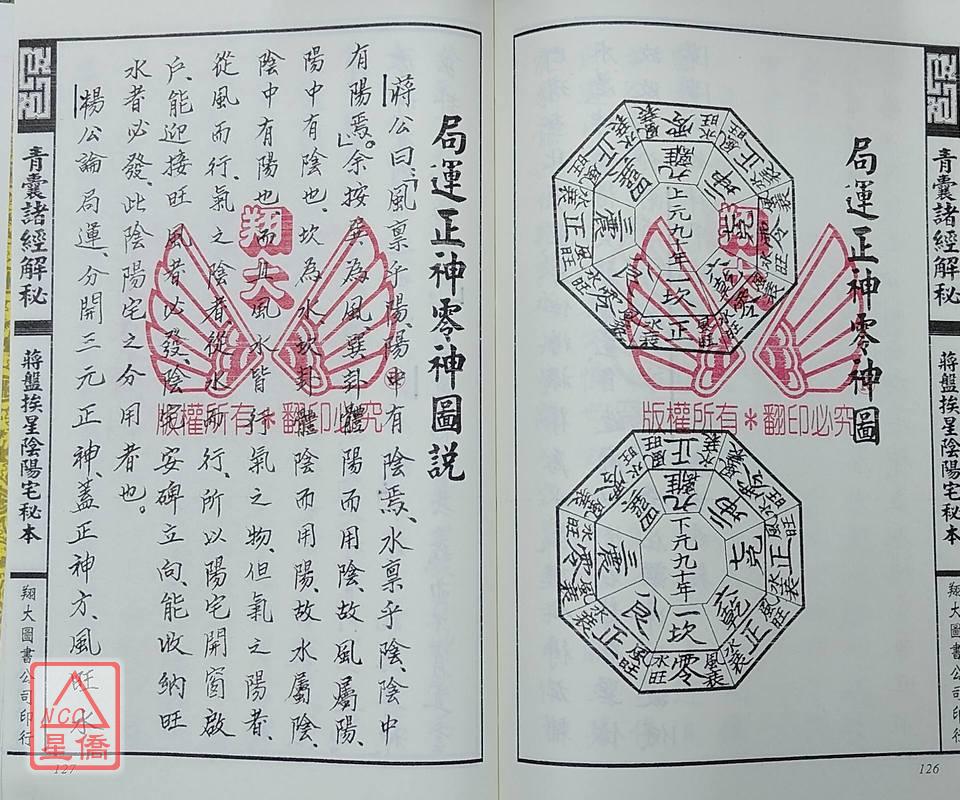 青囊諸經解秘
蔣盤挨星陰陽宅秘本
翔大圖書公司印行
126
局運正神零神圖
上元九十年
九離
二坤
七兌
六乾
一坎
八艮
三震
四巽
下元九十年
九離
二坤
七兌
六乾
一坎
八艮
三震
四巽
翔大
版權所有*翻印必究
局運正神零神圖説
蔣公曰、「風禀乎陽、陽中有陰焉、水禀乎陰、陰中
有陽焉。」余按巽為風、巽卦體陽而用陰、故風屬陽、
陽中有陰也、坎為水、坎卦體陰而用陽、故水屬陰、
陰中有陽也、而其風水皆行氣之物、但氣之陽者、
從風而行、氣之陰者、從水而行、所以陽宅開窗啟
戶、能迎接旺風者必發、陰宅安碑立向、能收納旺
水者必發、此陰陽宅之分用者也。
楊公論局運、分開三元正神、蓋正神方、風旺水
青囊諸經解秘
蔣盤挨星陰陽宅秘本
翔大圖書公司印行
127
翔大
版權所有*翻印必究
NCC
星僑